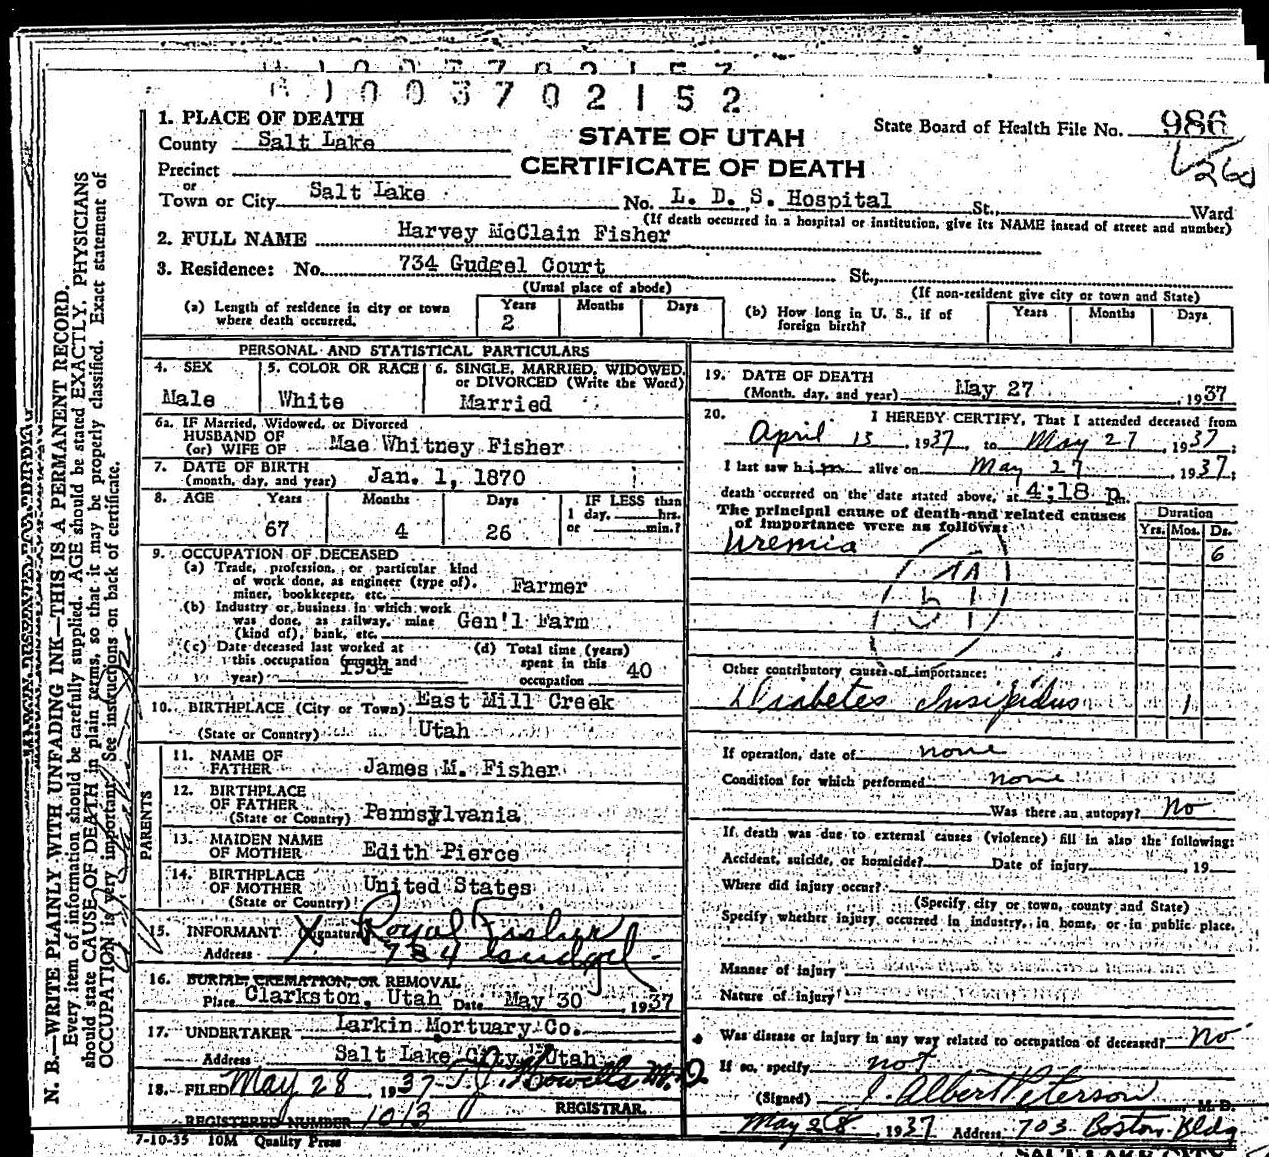 G 1 0 0 3 7 0 2 1 5 2
1. PLACE OF DEATH
STATE OF UTAH
CERTIFICATE OF DEATH
State Board of Health File No. 986
260
County Salt Lake
Precinct
or
Town or City Salt Lake No. L. D. S. Hospital St., Ward
(If death occurred in a hospital or institution, give its NAME instead of street and number)
2. FULL NAME Harvey McClain Fisher
3. Residence: No. 734 Gudgel Court St.,
(Usual place of abode) (If non-resident give city or town and State)
(a) Length of residence in city or town where death occurred. Years 2 Months Days
(b) How long in U. S., if of foreign birth? Years Months Days
PERSONAL AND STATISTICAL PARTICULARS
4. SEX
Male
5. COLOR OR RACE
White
6. SINGLE, MARRIED, WIDOWED, or DIVORCED (Write the Word)
Married
6a. IF Married, Widowed, or Divorced
HUSBAND OF
(or) WIFE OF Mae Whitney Fisher
7. DATE OF BIRTH
(month, day, and year) Jan. 1, 1870
8. AGE Years Months Days IF LESS than
1 day, hrs.
67 4 26 or min.?
9. OCCUPATION OF DECEASED
(a) Trade, profession, or particular kind
of work done, as engineer (type of),
miner, bookkeeper, etc. Farmer
(b) Industry or business in which work
was done, as railway, mine
(kind of), bank, etc. Gen'l Farm
(c) Date deceased last worked at
this occupation (month and
year) 1934
(d) Total time (years)
spent in this
occupation 40
10. BIRTHPLACE (City or Town) East Mill Creek
(State or Country) Utah
PARENTS
11. NAME OF
FATHER James M. Fisher
12. BIRTHPLACE
OF FATHER
(State or Country) Pennsylvania
13. MAIDEN NAME
OF MOTHER Edith Pierce
14. BIRTHPLACE
OF MOTHER
(State or Country) United States
15. INFORMANT (Signature) X Royal Fisher
Address 734 Gudgel
16. BURIAL, CREMATION, OR REMOVAL
Place Clarkston, Utah Date May 30, 1937
17. UNDERTAKER Larkin Mortuary Co.
Address Salt Lake City, Utah
18. FILED May 28, 1937 Howells M.D
REGISTRAR.
REGISTERED NUMBER 1013
7-10-35 10M Quality Press
19. DATE OF DEATH
(Month, day, and year) May 27, 1937
20. I HEREBY CERTIFY, That I attended deceased from
April 13, 1937, to May 27, 1937;
I last saw him alive on May 27, 1937;
death occurred on the date stated above, at 4:18 p.m.
The principal cause of death and related causes
of importance were as follows:
Duration
Yrs. Mos. Ds.
Uremia 6
51
Other contributory causes of importance:
Diabetes Insipidus 1
If operation, date of none
Condition for which performed none
Was there an autopsy? No
If death was due to external causes (violence) fill in also the following:
Accident, suicide, or homicide? Date of injury , 19
Where did injury occur?
(Specify city or town, county and State)
Specify whether injury occurred in industry, in home, or in public place.
Manner of injury
Nature of injury
Was disease or injury in any way related to occupation of deceased? No
If so, specify not
(Signed) J. Albert Peterson, M. D.
May 28, 1937 Address 703 Boston Bldg
SALT LAKE CITY
N. B.—WRITE PLAINLY WITH UNFADING INK—THIS IS A PERMANENT RECORD.
Every item of information should be carefully supplied. AGE should be stated EXACTLY. PHYSICIANS
should state CAUSE OF DEATH in plain terms, so that it may be properly classified. Exact statement of
OCCUPATION is very important. See instructions on back of certificate.